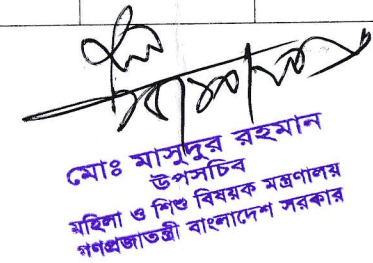 মোঃ মাসুদুর রহমান
উপসচিব
মহিলা ও শিশু বিষয়ক মন্ত্রণালয়
গণপ্রজাতন্ত্রী বাংলাদেশ সরকার